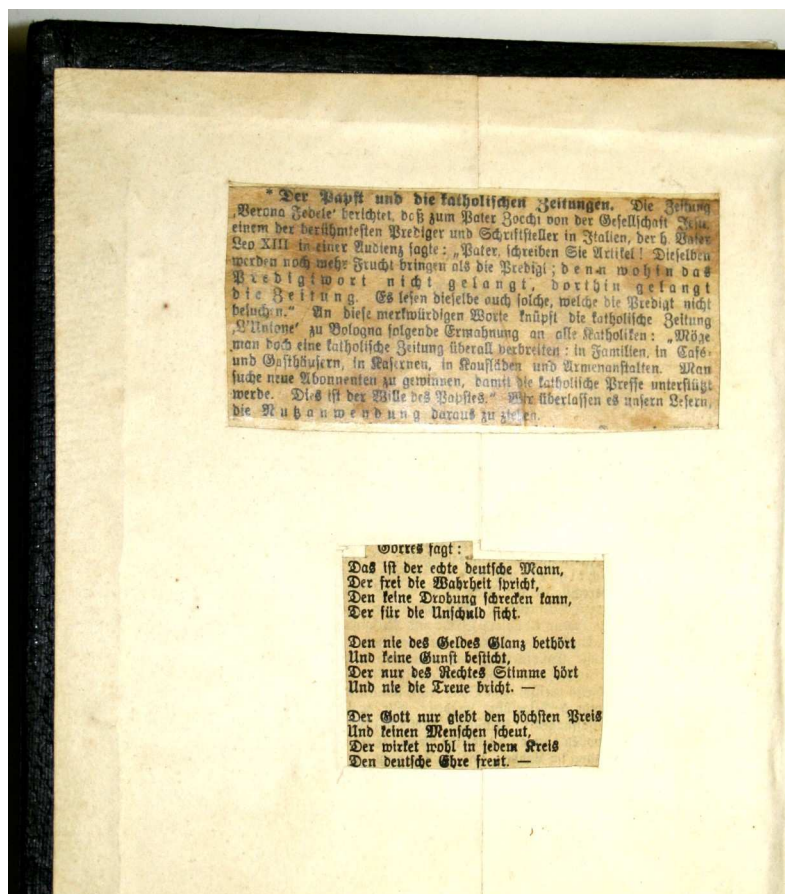 * Der Papst und die katholischen Zeitungen. Die Zeitung
‚Verona Fedele‘ berichtet, daß zum Pater Zocchi von der Gesellschaft Jesu,
einem der berühmtesten Prediger und Schriftsteller in Italien, der h. Vater
Leo XIII in einer Audienz sagte: „Pater, schreiben Sie Artikel! Dieselben
werden noch mehr Frucht bringen als die Predigt; denn wohin das
Predigtwort nicht gelangt, dorthin gelangt
die Zeitung. Es lesen dieselbe auch solche, welche die Predigt nicht
besuchen.“ An diese merkwürdigen Worte knüpft die katholische Zeitung
‚L'Unione‘ zu Bologna folgende Ermahnung an alle Katholiken: „Möge
man doch eine katholische Zeitung überall verbreiten: in Familien, in Cafés-
und Gasthäusern, in Kasernen, in Kaufläden und Armenanstalten. Man
suche neue Abonnenten zu gewinnen, damit die katholische Presse unterstützt
werde. Dies ist der Wille des Papstes.“ Wir überlassen es unsern Lesern,
die Nutzanwendung daraus zu ziehen.
Görres sagt:
Das ist der echte deutsche Mann,
Der frei die Wahrheit spricht,
Den keine Drohung schrecken kann,
Der für die Unschuld ficht.
Den nie des Geldes Glanz bethört
Und keine Gunst besticht,
Der nur des Rechtes Stimme hört
Und nie die Treue bricht. —
Der Gott nur giebt den höchsten Preis
Und keinen Menschen scheut,
Der wirket wohl in jedem Kreis
Den deutsche Ehre freut. —